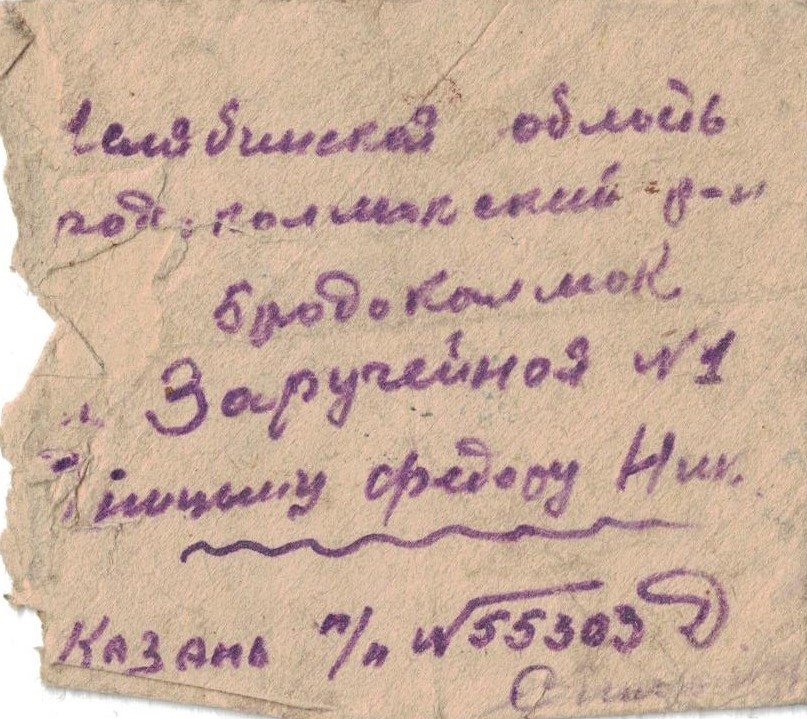 Челябинская область
род.колмакский р-н
Бродоколмак
Заручейная №1
Федору Ник.
Казань п/п №55303 Д